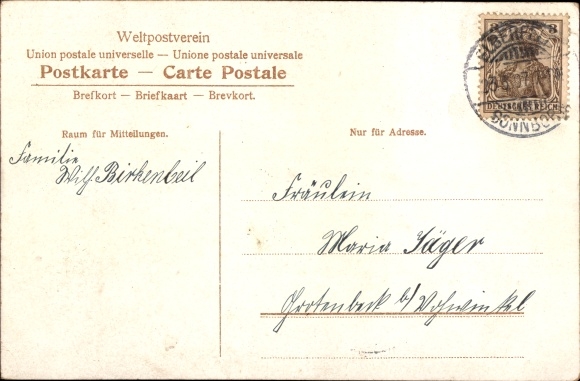 Weltpostverein
Union postale universelle — Unione postale universale
Postkarte — Carte Postale
Brefkort — Briefkaart — Brevkort.
Raum für Mitteilungen.
Nur für Adresse.
Familie
Wilh. Birkenbeil
Fräulein
Maria Jäger
Grotenbeck b/ Vohwinkel
3 3
DEUTSCHES REICH
ELBERFELD
SONNBORN